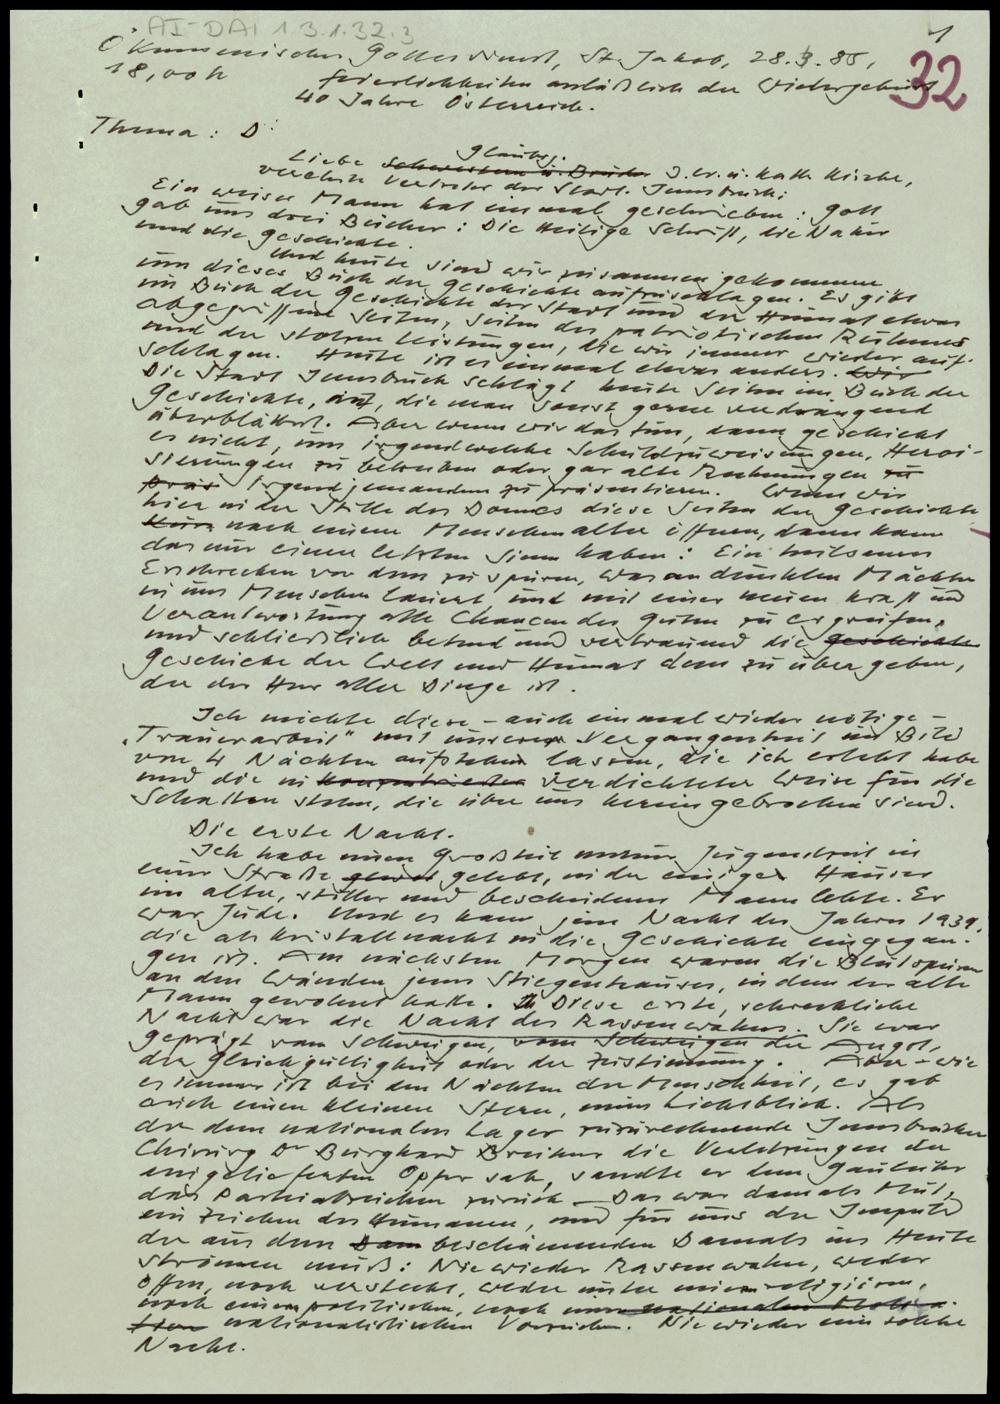 AI-DA1 1.3.1.32.3
1
Ökumenischer Gottesdienst, St. Jakob, 28.3.85,
32
18,00 h
Feierlichkeiten anläßlich der Wiedergeburt
40 Jahre Österreich.
Thema: D
gläubg.
Liebe Schwestern u. Brüder d. ev. u. kath. Kirche,
verehrte Vertreter der Stadt Innsbruck;
Ein weiser Mann hat einmal geschrieben: Gott
gab uns drei Bücher: Die Heilige Schrift, die Natur
und die Geschichte.
Und heute sind wir zusammengekommen
um dieses Buch der Geschichte aufzuschlagen. Es gibt
im Buch der Geschichte der Stadt und der Heimat etwas
abgegriffene Seiten, Seiten des patriotischen Ruhmes
und der stolzen Leistungen, die wir immer wieder auf-
schlagen. Heute ist es einmal etwas anders. Wir
Die Stadt Innsbruck schlägt heute Seiten im Buch der
Geschichte, auf, die man sonst gerne verdrängend
überblättert. Aber wenn wir das tun, dann geschieht
es nicht, um irgendwelche Schuldzuweisungen, Heroi-
sierungen zu betreiben oder gar alte Rechnungen zu
präs irgendjemandem zu präsentieren. Wenn wir
hier in der Stille des Domes diese Seiten der Geschichte
kurz nach einem Menschenalter öffnen, dann kann
das nur einen letzten Sinn haben: Ein heilsames
Erschrecken vor dem zu spüren, was an dunklen Mächten
in uns Menschen lauert, und mit einer neuen Kraft und
Verantwortung alle Chancen des Guten zu ergreifen,
und schließlich betend und vertrauend die Geschichte
Geschicke der Welt und Heimat dem zu übergeben,
der der Herr aller Dinge ist.
Ich möchte diese – auch einmal wieder nötige –
„Trauerarbeit" mit unserer Vergangenheit im Bild
von 4 Nächten aufstehen lassen, die ich erlebt habe
und die in konzentrierter verdichteter Weise für die
Schatten stehn, die über uns hereingebrochen sind.
Die erste Nacht.
Ich habe einen Großteil meiner Jugendzeit in
einer Straße gelebt, in der einige Häuser
ein alter, stiller und bescheidener Mann lebte. Er
war Jude. Und es kam jene Nacht des Jahres 1939,
die als Kristallnacht in die Geschichte eingegan-
gen ist. Am nächsten Morgen waren die Blutspuren
an den Wänden jenes Stiegenhauses, in dem der alte
Mann gewohnt hatte. Diese erste, schreckliche
Nacht war die Nacht des Rassenwahns. Sie war
geprägt vom Schweigen, vom Schweigen der Angst,
der Gleichgültigkeit oder der Zustimmung. Aber – wie
es immer ist bei den Nächten der Menschheit, es gab
auch einen kleinen Stern, einen Lichtblick. Als
der dem nationalen Lager zuzurechnende Innsbrucker
Chirurg Dr Burghard Breitner die Verletzungen der
eingelieferten Opfer sah, sandte er dem Gauleiter
das Parteiabzeichen zurück – Das war damals Mut,
ein Zeichen des Humanen, und für uns der Impuls
der aus dem Dam beschämenden Damals ins Heute
strömen muß: Nie wieder Rassenwahn, weder
offen, noch versteckt, weder unter einem religiösen,
noch einem politischen, noch nationalistischen Vorzeichen. Nie wieder eine solche
Nacht.